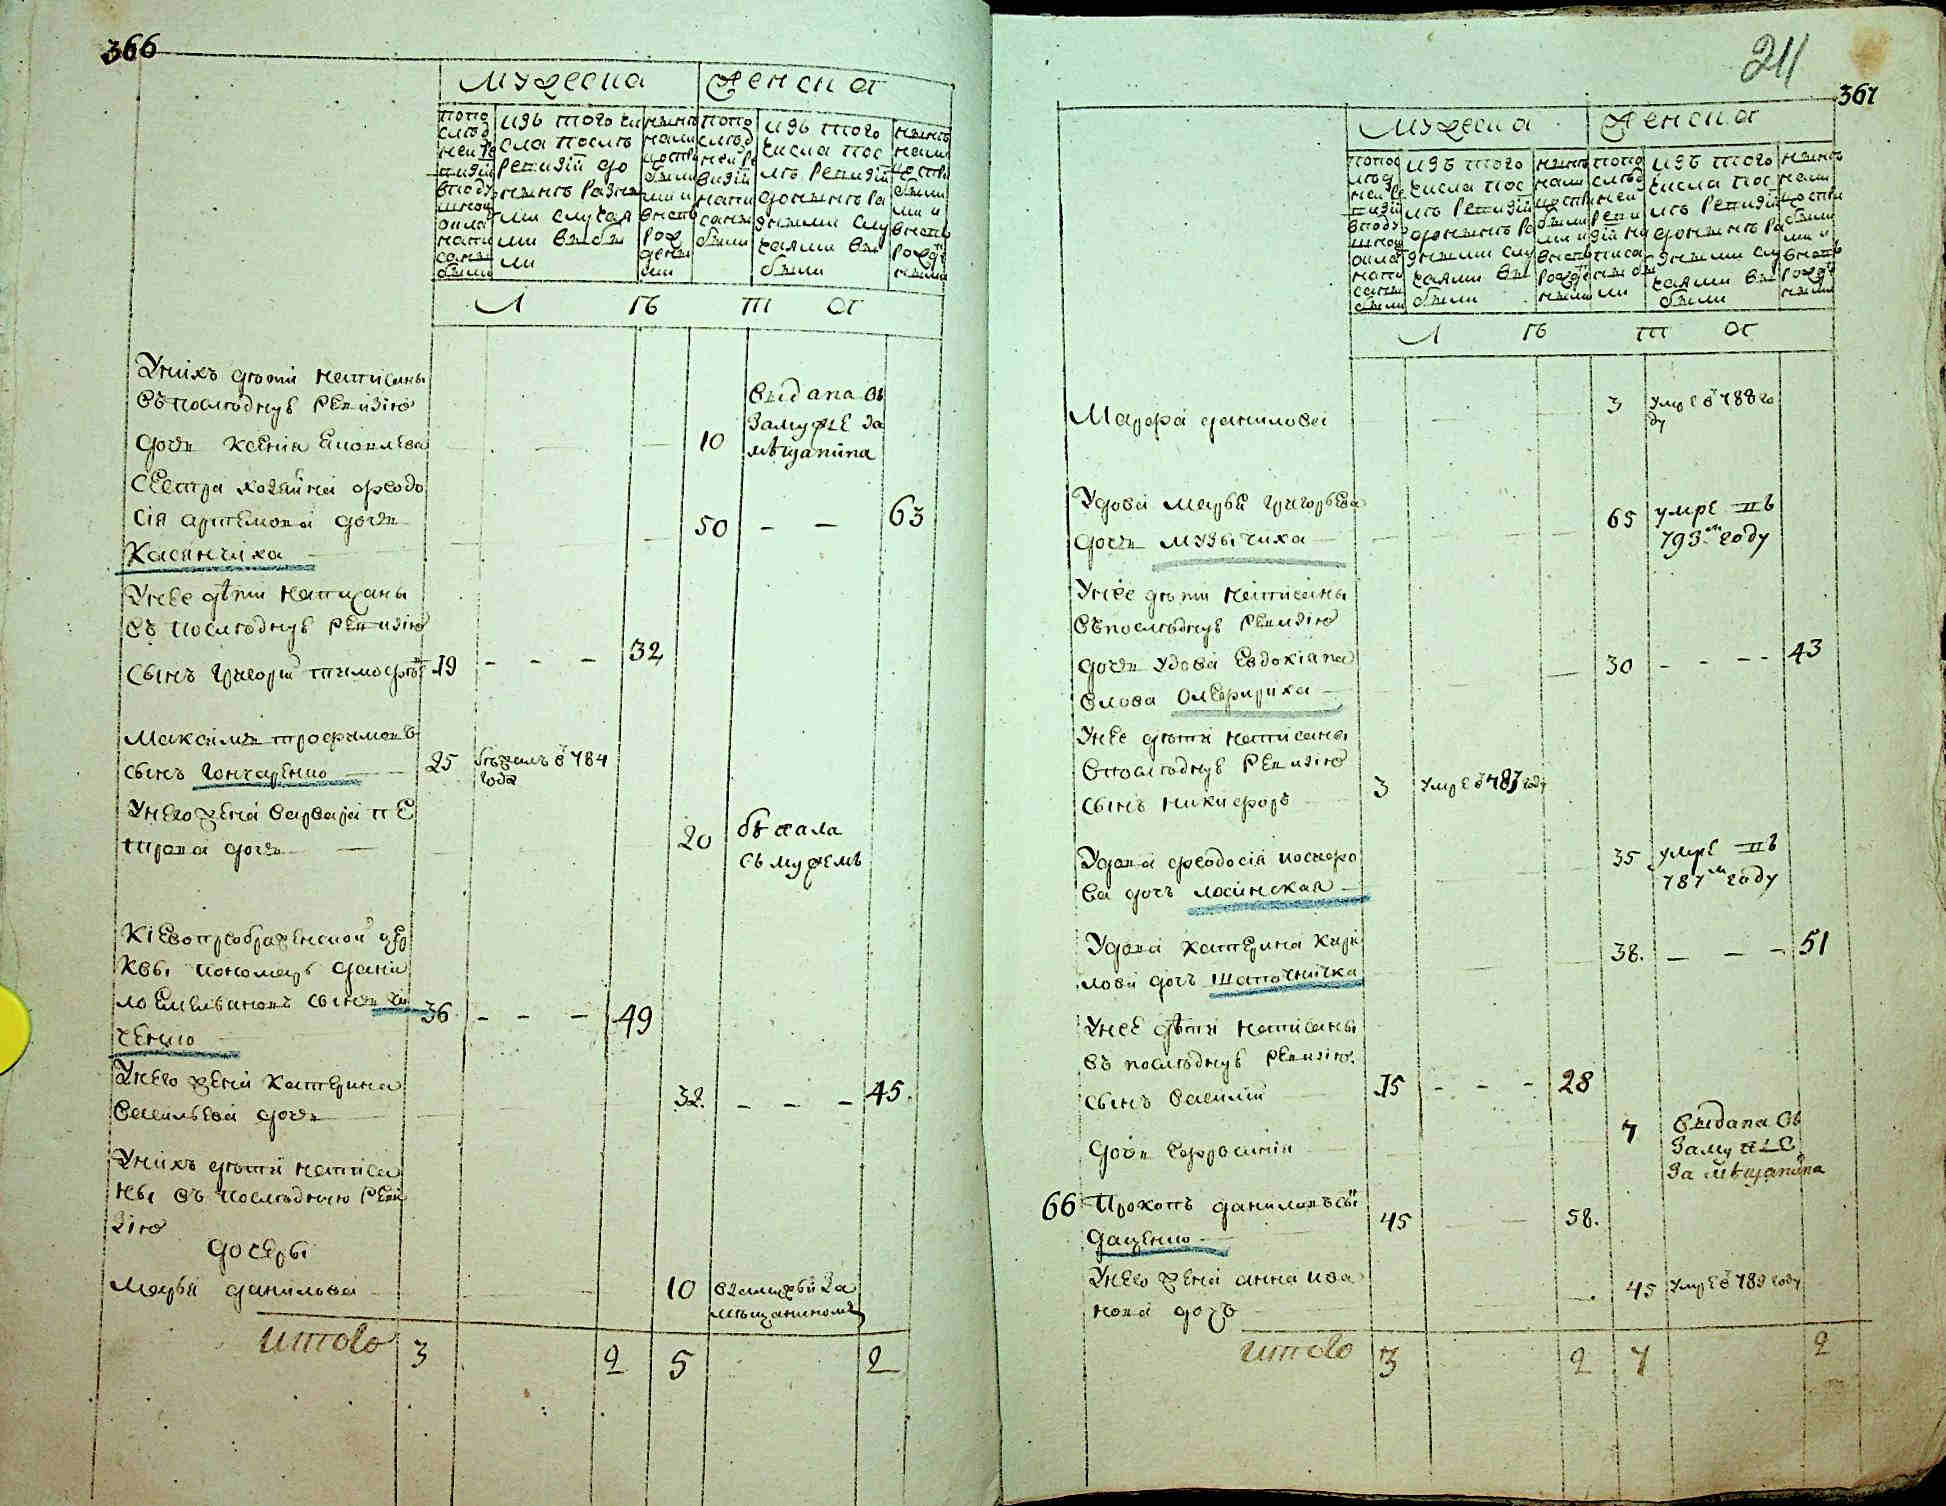 366
Мужеска Женска
попо
след
ней ре
визїи
вподу
шной
оклад
напи
саны
были
изъ того чи
сла после
ревизїи до
ныне разны
ми случая
ми выбы
ли
ныне
нали
цо ста
рыми
ми и
вновь
рож
денны
ми
попо
след
ней ре
визїи
напи
саны
были
изъ того
числа пос
ле ревизїи
доныне ра
зными слу
чаями вы
были
ныне
нали
цо
ми и
вновь
рожде
ными
Л Ѣ Т А
Унихъ дѣти написаны
въ последную ревизїю
дочь Ксенїя Яковлева 10 выдана въ
замужъе за
мѣщанина
Сестра хозяина Феодо
сїя Артемова дочь 50 — — 63
Касянчиха
Унее дѣти написаны
въ последную ревизїю
Сынъ Григорїй Тимофѣ 19 - - - 32
Максимъ Трофимовъ
сынъ Гончаренко 25 бѣжалъ в 784
года
Унего жена Варвара пе
трова дочь 20 бѣжала
съ мужемъ
Кїевопреображенской цер
квы пономарь Дани
ло Емельяновъ сынъ Ки
ченко 36 - - - 49
Унего жена Катерина
Васильева дочь 32. - - - 45.
Унихъ дѣти написа
ны въ последнюю реви
зїю
дочеры
Марья Данилова 10 взамужъи за
мещаниномъ
итого 3 2 5 2
211
367
Мужеска Женска
попос
лед
ней ре
визїи
вподу
шной
оклад
напи
саны
были
изъ того
числа пос
ле ревизїи
доныне ра
зными слу
чаями вы
были
ныне
нали
ми и
вновь
рожде
ными
попо
след
ней
реви
зїи на
писа
ны бы
ли
изъ того
числа пос
ле ревизїи
доныне ра
зными слу
чаями вы
были
ныне
нали
цо
ми и
вновь
рожде
ными
Л Ѣ Т А
Марфа Данилова 3 умре в 788 го
ду
Удова Марья Григорьева
дочь Музычиха 65 умре въ
793м году
Унее дети написаны
въпоследную ревизїю
дочь удова Евдокїя па
влова Олефириха 30 - - - - 43
Унее дѣти написаны
впоследную ревизїю
Сынъ Никифоръ 3 умре в 787 году
Удова Феодосїя
ва дочъ Лосинская 35 умре въ
787м году
Удова Катерина Кири
лова дочъ Шапочничка 38. - - - 51
Унее дѣти написаны
въ последную ревизїю.
Сынъ Василїй 15 - - - 28
Дочь Ефросинїя 7 выдана въ
замужъе
за мѣщанина
66 Прокопъ Даниловъ сы
Даценко 45 58.
Унего жена Анна Ива
нова дочъ 45 умре в 789 году
итого 3 2 7 2